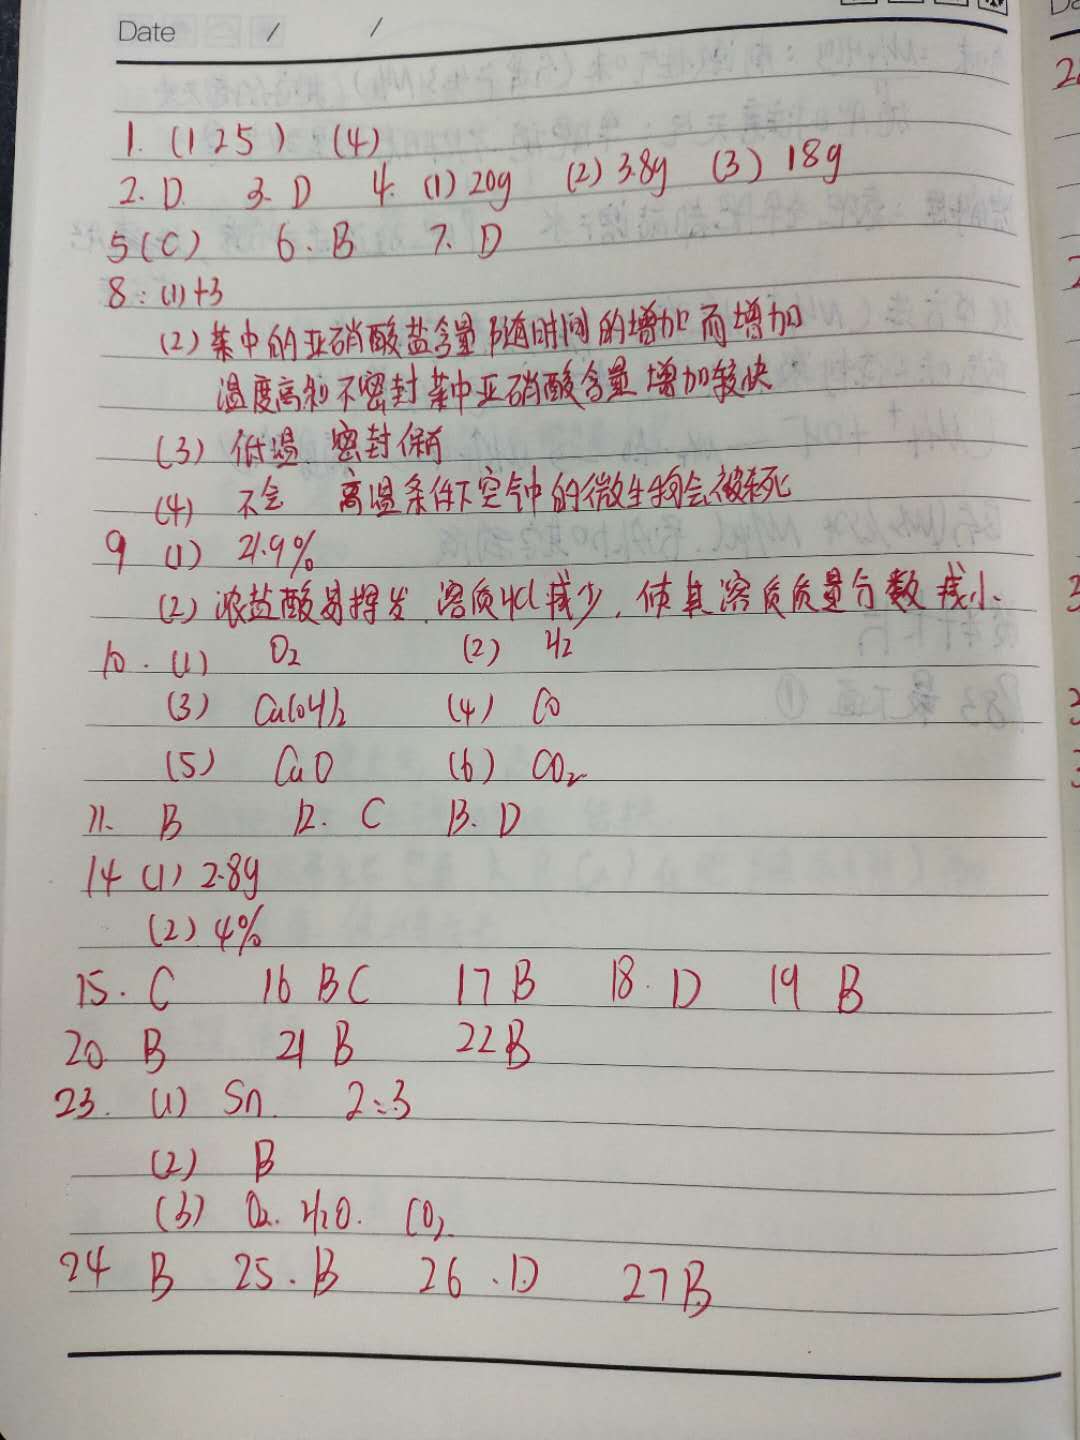 Date / /
1. (125) (4)
2. D 3. D 4. (1) 20g (2) 3.8g (3) 18g
5 (C) 6. B 7. D
8: (1) +3
(2) 菜中的亚硝酸盐含量随时间的增加而增加
温度高和不密封菜中亚硝酸含量增加较快
(3) 低温 密封保存
(4) 不会 高温条件下空气中的微生物会被杀死
9 (1) 21.9%
(2) 浓盐酸易挥发，溶质HCl减少，使其溶质质量分数减小.
10. (1) O₂ (2) H₂
(3) Ca(OH)₂ (4) CO
(5) CaO (6) CO₂
11. B 12. C 13. D
14 (1) 2.8g
(2) 4%
15. C 16 BC 17 B 18. D 19 B
20. B 21 B 22 B
23. (1) Sn 2:3
(2) B
(3) O₂. H₂O. CO₂
24 B 25. B 26. D 27 B